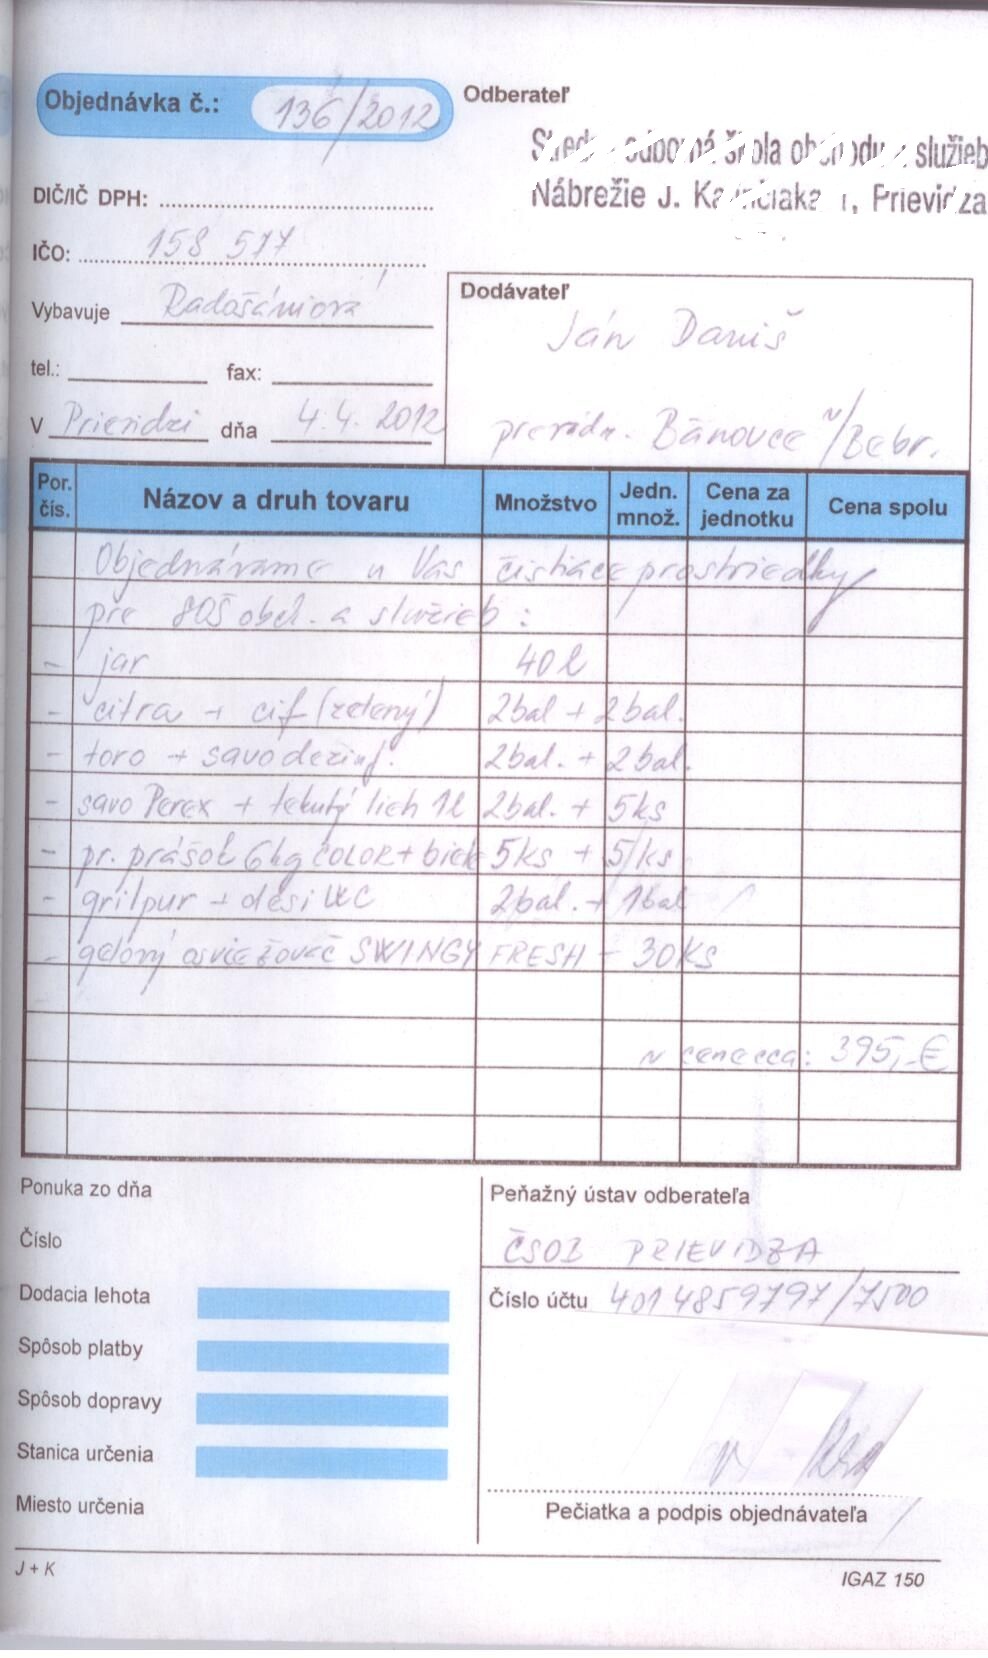 Objednávka č.: 136/2012
Odberateľ
Stredná odborná škola obchodu a služieb
Nábrežie J. Kalinčiaka 1, Prievidza
DIČ/IČ DPH:
IČO: 158 577
Vybavuje Radošániová
tel.: fax:
V Prievidzi dňa 4.4. 2012
Dodávateľ
Ján Daniš
prevádz. Bánovce n/Bebr.
Por. čís. Názov a druh tovaru Množstvo Jedn. množ. Cena za jednotku Cena spolu
Objednávame u Vás čistiace prostriedky
pre SOŠ obch. a služieb:
- jar 40 l
- citra + cif (zelený) 2bal + 2bal.
- toro + savo dezinf. 2bal. + 2bal.
- savo Perex + tekutý lieh 1l 2bal. + 5ks
- pr. prášok 6kg COLOR + biele 5ks + 5ks
- grilpur + desi WC 2bal. + 1bal
- gélový osviežovač SWINGY FRESH - 30Ks
v cene cca: 395,-€
Ponuka zo dňa
Číslo
Dodacia lehota
Spôsob platby
Spôsob dopravy
Stanica určenia
Miesto určenia
Peňažný ústav odberateľa
ČSOB PRIEVIDZA
Číslo účtu 4014859797/7500
Pečiatka a podpis objednávateľa
J + K
IGAZ 150